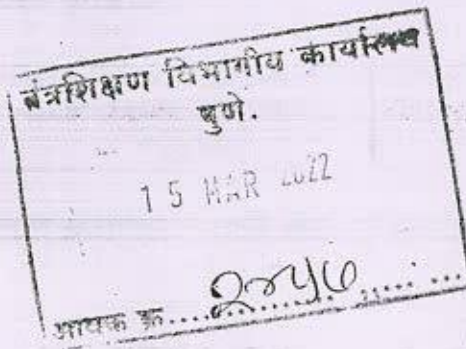 तंत्रशिक्षण विभागीय कार्यालय
पुणे.
15 MAR 2022
आवक क्र.....................